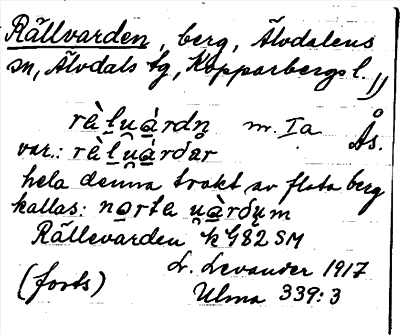 Rällvarden, berg, Älvdalens
sn, Älvdals tg, Kopparbergs l.
rὰl̠u̯a̠̍rdn̥ m. Ia Ås.
var.: rὰl̠u̯a̠̍rðær
hela denna trakt av flata berg
kallas: no̠rta u̯a̠̍rðųm
Rällevarden k G82 SM
L. Levander 1917
(forts) Ulma 339:3